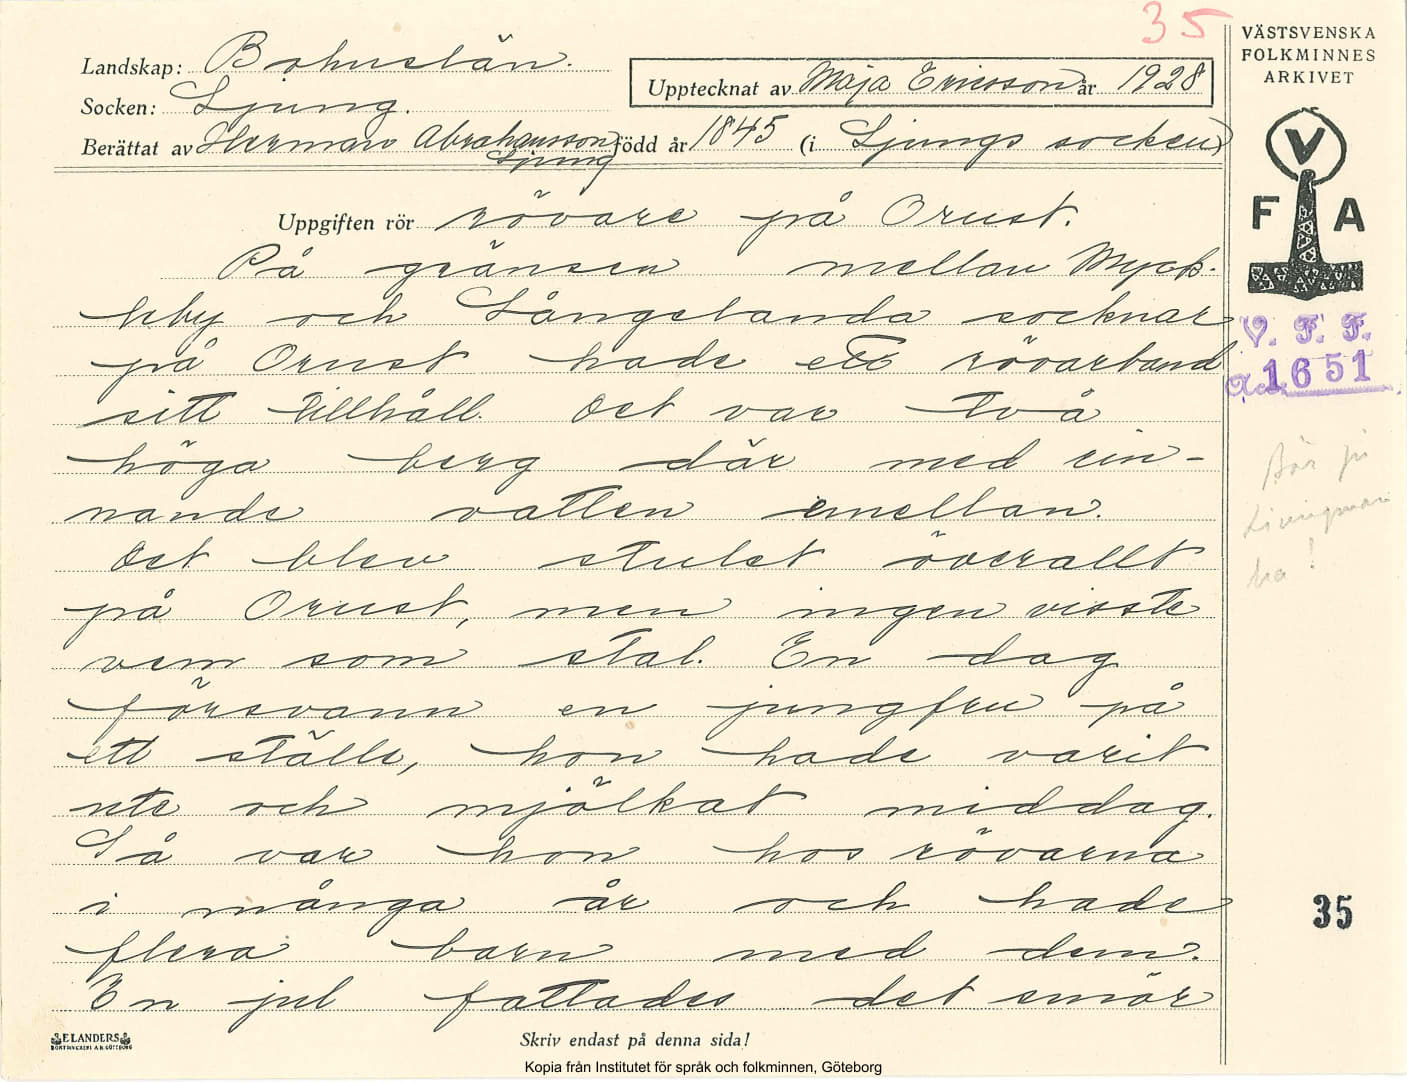 35
VÄSTSVENSKA
FOLKMINNES
ARKIVET
Landskap: Bohuslän.
Upptecknat av Maja Ericsson år 1928
Socken: Ljung.
Berättat av Herman Abrahamsson Ljung född år 1845 (i Ljungs socken)
V
F A
Uppgiften rör rövare på Orust.
På gränsen mellan Myck-
leby och Långelanda socknar
på Orust hade ett rövarband
sitt tillhåll. Det var två
höga berg där med rin-
nande vatten emellan.
Det blev stulet överallt
på Orust, men ingen visste
vem som stal. En dag
försvann en jungfru på
ett ställe, hon hade varit
ute och mjölkat middag.
Så var hon hos rövarna
i många år och hade
flera barn med dem.
En jul fattades det smör
V. F. F.
Acc. 1651
35
ELANDERS
BOKTRYCKERI A.B. GÖTEBORG
Skriv endast på denna sida!
Kopia från Institutet för språk och folkminnen, Göteborg